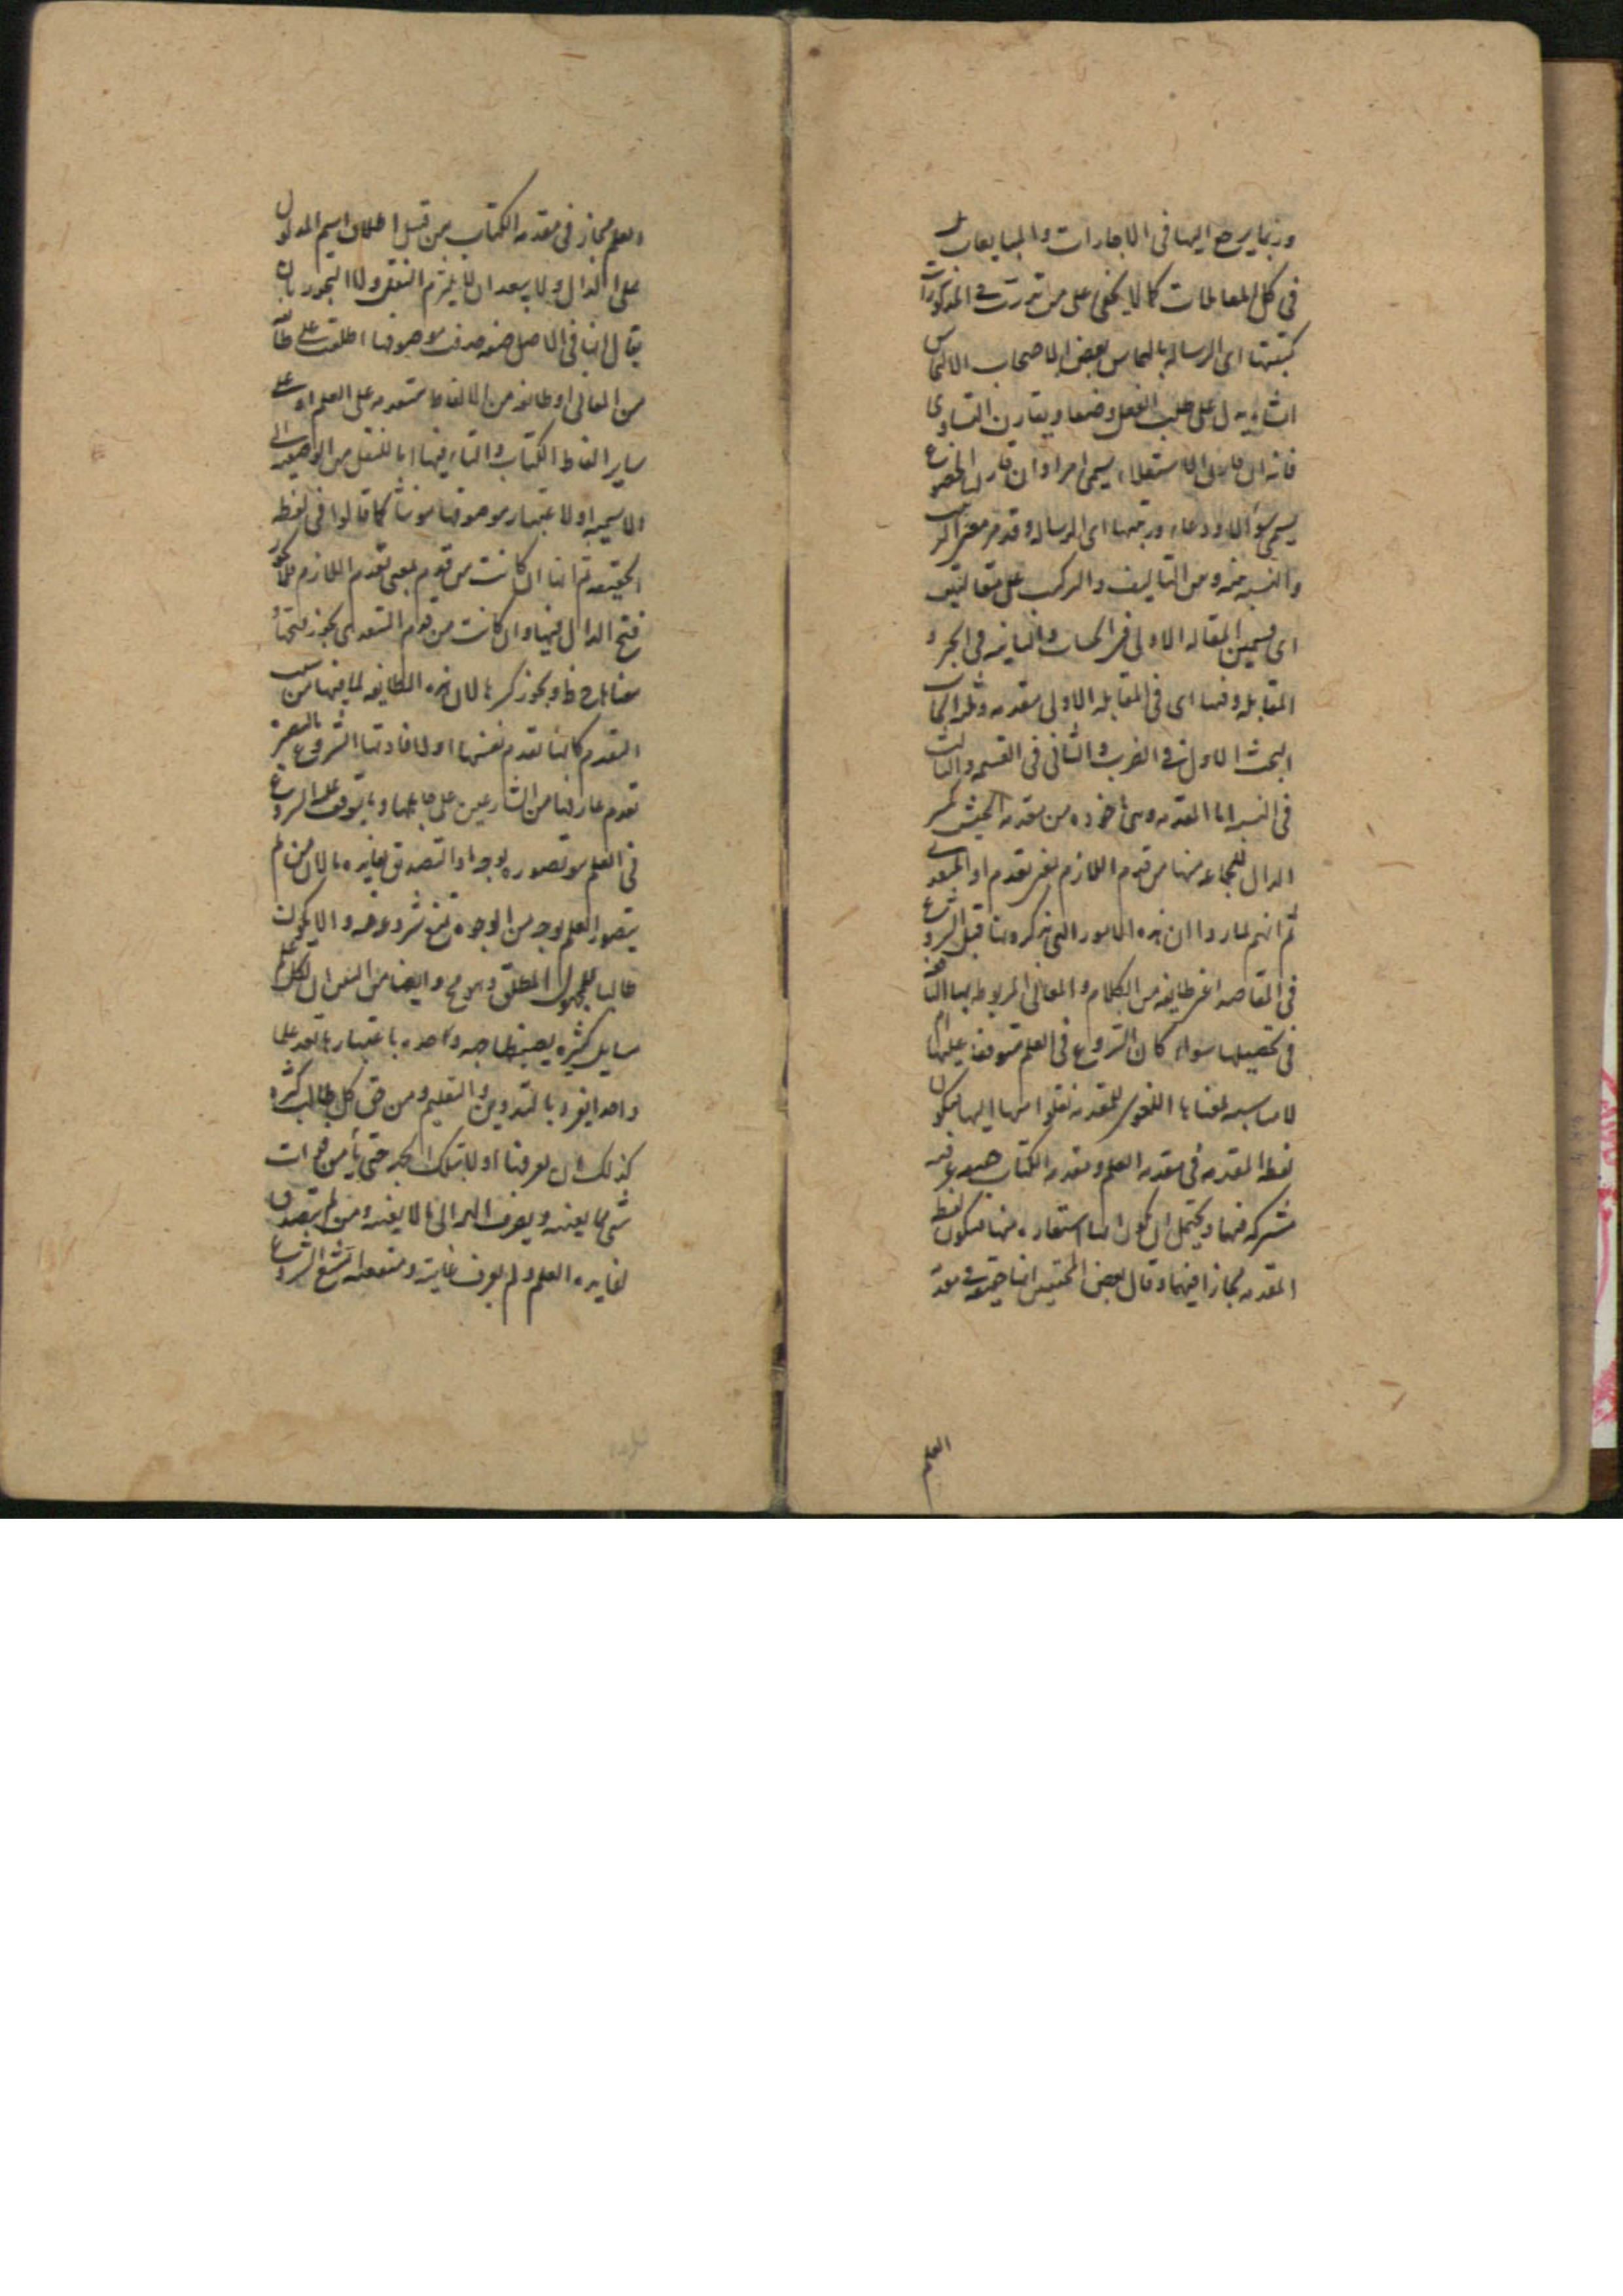 وربما يرجع اليها في الاجارات والمبايعات بل
في كل المعاملات كما لا يخفى على من تدرب في المذكورات
كتبتها اى الرساله بالتماس بعض الاصحاب الالتماس
انشاء يدل على طلب الفعل وضعا ويقارن التساوى
فانه ان قارن الاستعلاء يسمى امرا وان قارن الخضوع
يسمى سؤالا ودعاء ورتبتها اى الرساله وقد مر معنى الترتيب
والنسبه منه ومن التاليف والتركيب على مقالتين
اى قسمين المقاله الاولى في الحساب والثانيه في الجبر و
المقابله وفيها اى في المقابله الاولى مقدمه وثلث ابحاث
البحث الاول في الضرب والثانى في القسمه والثالث
في النسبه اما المقدمه وهى ماخوذه من مقدمه الجيش بكسر
الدال للجماعه منها من قدم اللازم بمعنى تقدم او المتعدى
ثم انهم لما رءوا ان هذه الامور التى يذكرونها قبل الشروع
في المقاصد اعنى طايفه من الكلام والمعانى المربوط بها النافعه
في تحصيلها سواء كان الشروع في العلم متوقفا عليها ام
لا مناسبه لمعناها اللغوى للمقدمه نقلوا منها اليها فيكون
لفظ المقدمه في مقدمه العلم ومقدمه الكتاب حقيقه عرفيه
مشتركه فيها ويحتمل ان يكون لها استعاره منها فيكون لفظ
المقدمه مجازا فيهما وقال بعض المحققين انها حقيقه في مقدمه
العلم
العلم مجاز في مقدمه الكتاب من قبيل اطلاق اسم المدلول
على الدال ولا يبعد ان لا يلتزم النقل ولا التجوز بان
يقال انها في الاصل صفه حذف موصوفها اطلقت على طائفه
من المعانى او طائفه من الالفاظ متقدمه على العلم او على
ساير الفاظ الكتاب والتاء فيها اما للنقل من الوصفيه الى
الاسميه او لاعتبار موصوفها مؤنثا كما قالوا في لفظ
الحقيقه ثم انها ان كانت من قدم بمعنى تقدم اللازم فلا يجوز
فتح الدال فيها وان كانت من قدم المتعدى يجوز فتحها و
معناها ظ ويجوز كسرها لان هذه الطايفه لما فيها من سبب
التقدم كانها تقدم نفسها او لافادتها الشروع بالبصيره
تقدم عارفها من الشارعين على جاهلها وما يتوقف عليه الشروع
في العلم هو تصوره بوجه او التصديق بفايده ما لان من لم
يتصور العلم بوجه من الوجوه يمتنع شروعه فيه والا يكون
طالبا للمجهول المطلق وهو مح وايضا من المتعين ان لكل علم
مسايل كثيره يضبطها جهه واحده باعتبارها تعد علما
واحدا يفرد بالتدوين والتعليم ومن حق كل طالب كثره
كذلك ان يعرفها اولا بتلك الجهه حتى يأمن فوات
شئ مما يعنيه ويصرف الهمه الى ما لا يعنيه ومن لم يتصدق
لفايده العلم ولم يعرف غايته ومنفعته يمتنع الشروع